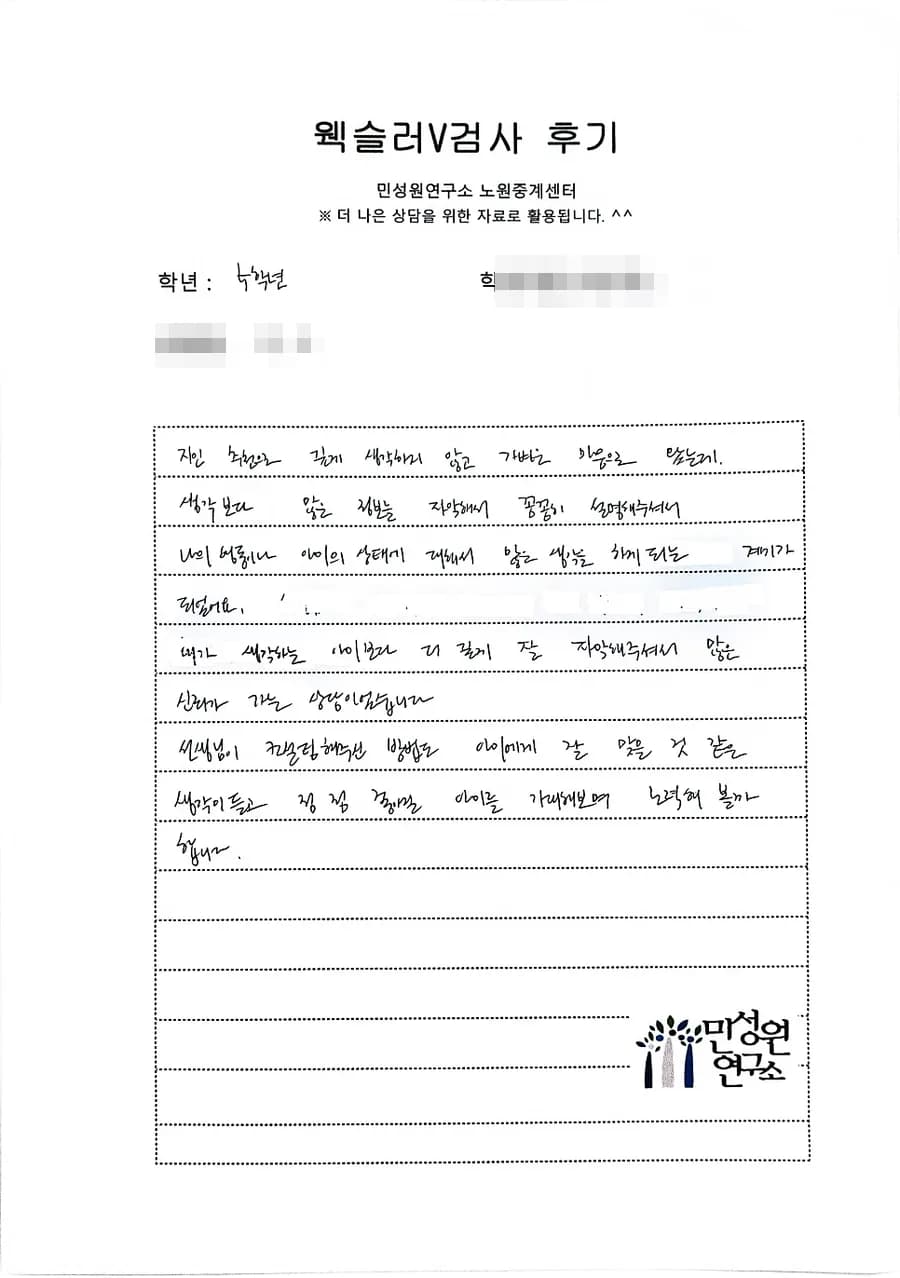 웩슬러V검사 후기
민성원연구소 노원중계센터
※ 더 나은 상담을 위한 자료로 활용됩니다. ^^
학년 : 학년
학
지인 추천으로 깊게 생각하지 않고 가벼운 마음으로 왔는데.
생각보다 많은 정보를 파악해서 꼼꼼히 설명해주셔서
나의 행동이나 아이의 상태에 대해서 많은 생각을 하게 되는 계기가
되었어요.
내가 생각하는 아이보다 더 깊게 잘 파악해주셔서 많은
신뢰가 가는 상담이었습니다
선생님이 컨설팅해주신 방법도 아이에게 잘 맞을 것 같은
생각이 들고 점 점 아이를 기대해보며 노력해 볼까
합니다.
민성원
연구소